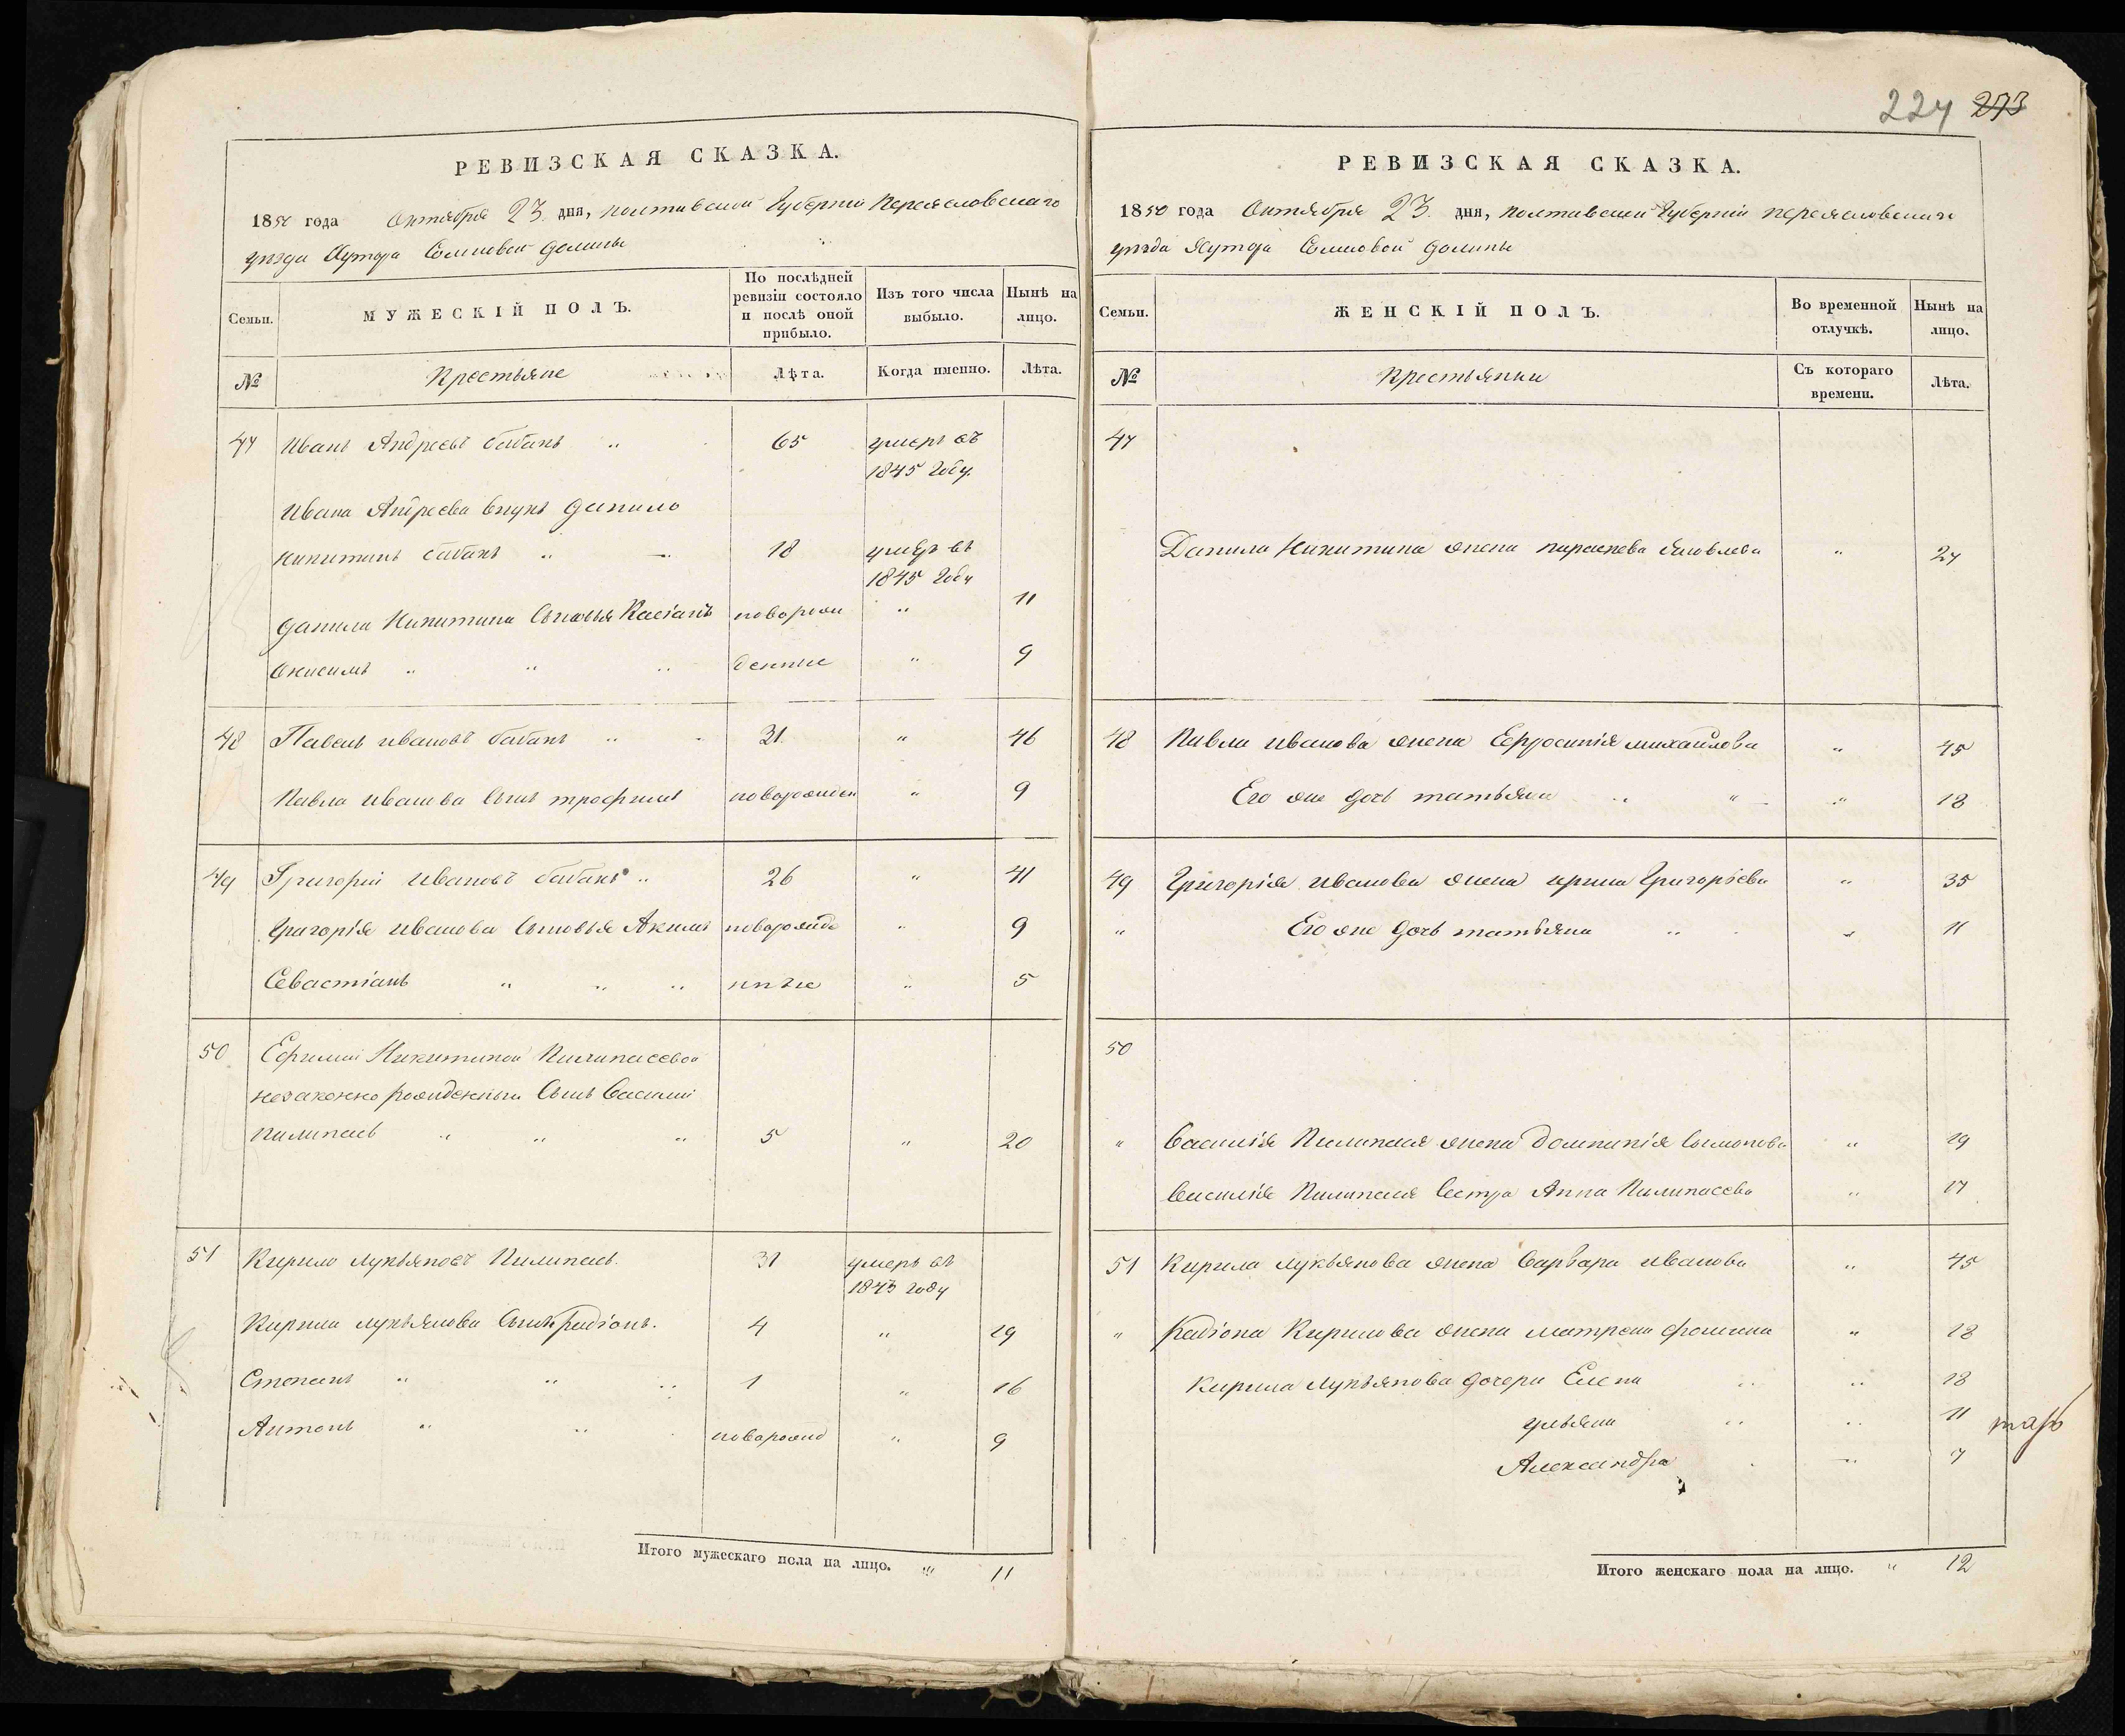 224 273
РЕВИЗСКАЯ СКАЗКА.
1850 года Октября 23 дня, Полтавской Губернии Переясловскаго
уезда Хутора Сомковой долины
Семьи.
МУЖЕСКІЙ ПОЛЪ.
По послѣдней ревизіи состояло и послѣ оной прибыло.
Изъ того числа выбыло.
Нынѣ на лицо.
№
Крестьяне
Лѣта.
Когда именно.
Лѣта.
47 Иванъ Андреевъ бабакъ " 65 умеръ въ
1845 Году.
Ивана Андреева внукъ Данило
Никитинъ бабакъ " 18 умеръ въ
1845 Году
Данила Никитина Сыновья Касіанъ новорож " 11
Онисимъ " " " денные " 9
48 Павелъ ивановъ бабакъ " 31 " 46
Павла иванова Сынъ трофимъ новорожден " 9
49 Григорий ивановъ бабакъ " 26 " 41
Григорія иванова Сыновья Акимъ новорожде " 9
Севастіанъ " " " нные " 5
50 Ефимии Никитиной Пилипасевой
незаконно рожденный Сынъ Василий
Пилипась " " " 5 " 20
51 Кирило лукьяновъ Пилипась. 31 умеръ въ
1843 году
Кирила лукьянова Сынъ Радіонъ. 4 " 19
Степанъ " " " 1 " 16
Антонъ " " новорожд " 9
Итого мужескаго пола на лицо. " 11
РЕВИЗСКАЯ СКАЗКА.
1850 года Октября 23 дня, Полтавской Губерніи переясловскаго
уезда Хутора Сомковой долины
Семьи.
ЖЕНСКІЙ ПОЛЪ.
Во временной отлучкѣ.
Нынѣ на лицо.
№
Крестьянки
Съ котораго времени.
Лѣта.
47
Данила Никитина жена параскева Яковлева " 27
48 Павла иванова жена Ефросинія михайлова " 45
Его же дочь татьяна " " " 18
49 Григорія иванова жена ирина Григорьева " 35
" Его же дочь татьяна " " 11
50
" Василія Пилипася жена домникія Сымонова " 19
Василія Пилипася Сестра Анна Пилипасева " 17
51 Кирила лукьянова жена Варвара иванова " 45
" Радіона Кирилова жена матрена фомина " 18
Кирила лукьянова дочери Елена " " 18
ульяна " " 11
Александра " 7
Итого женскаго пола на лицо. " 12